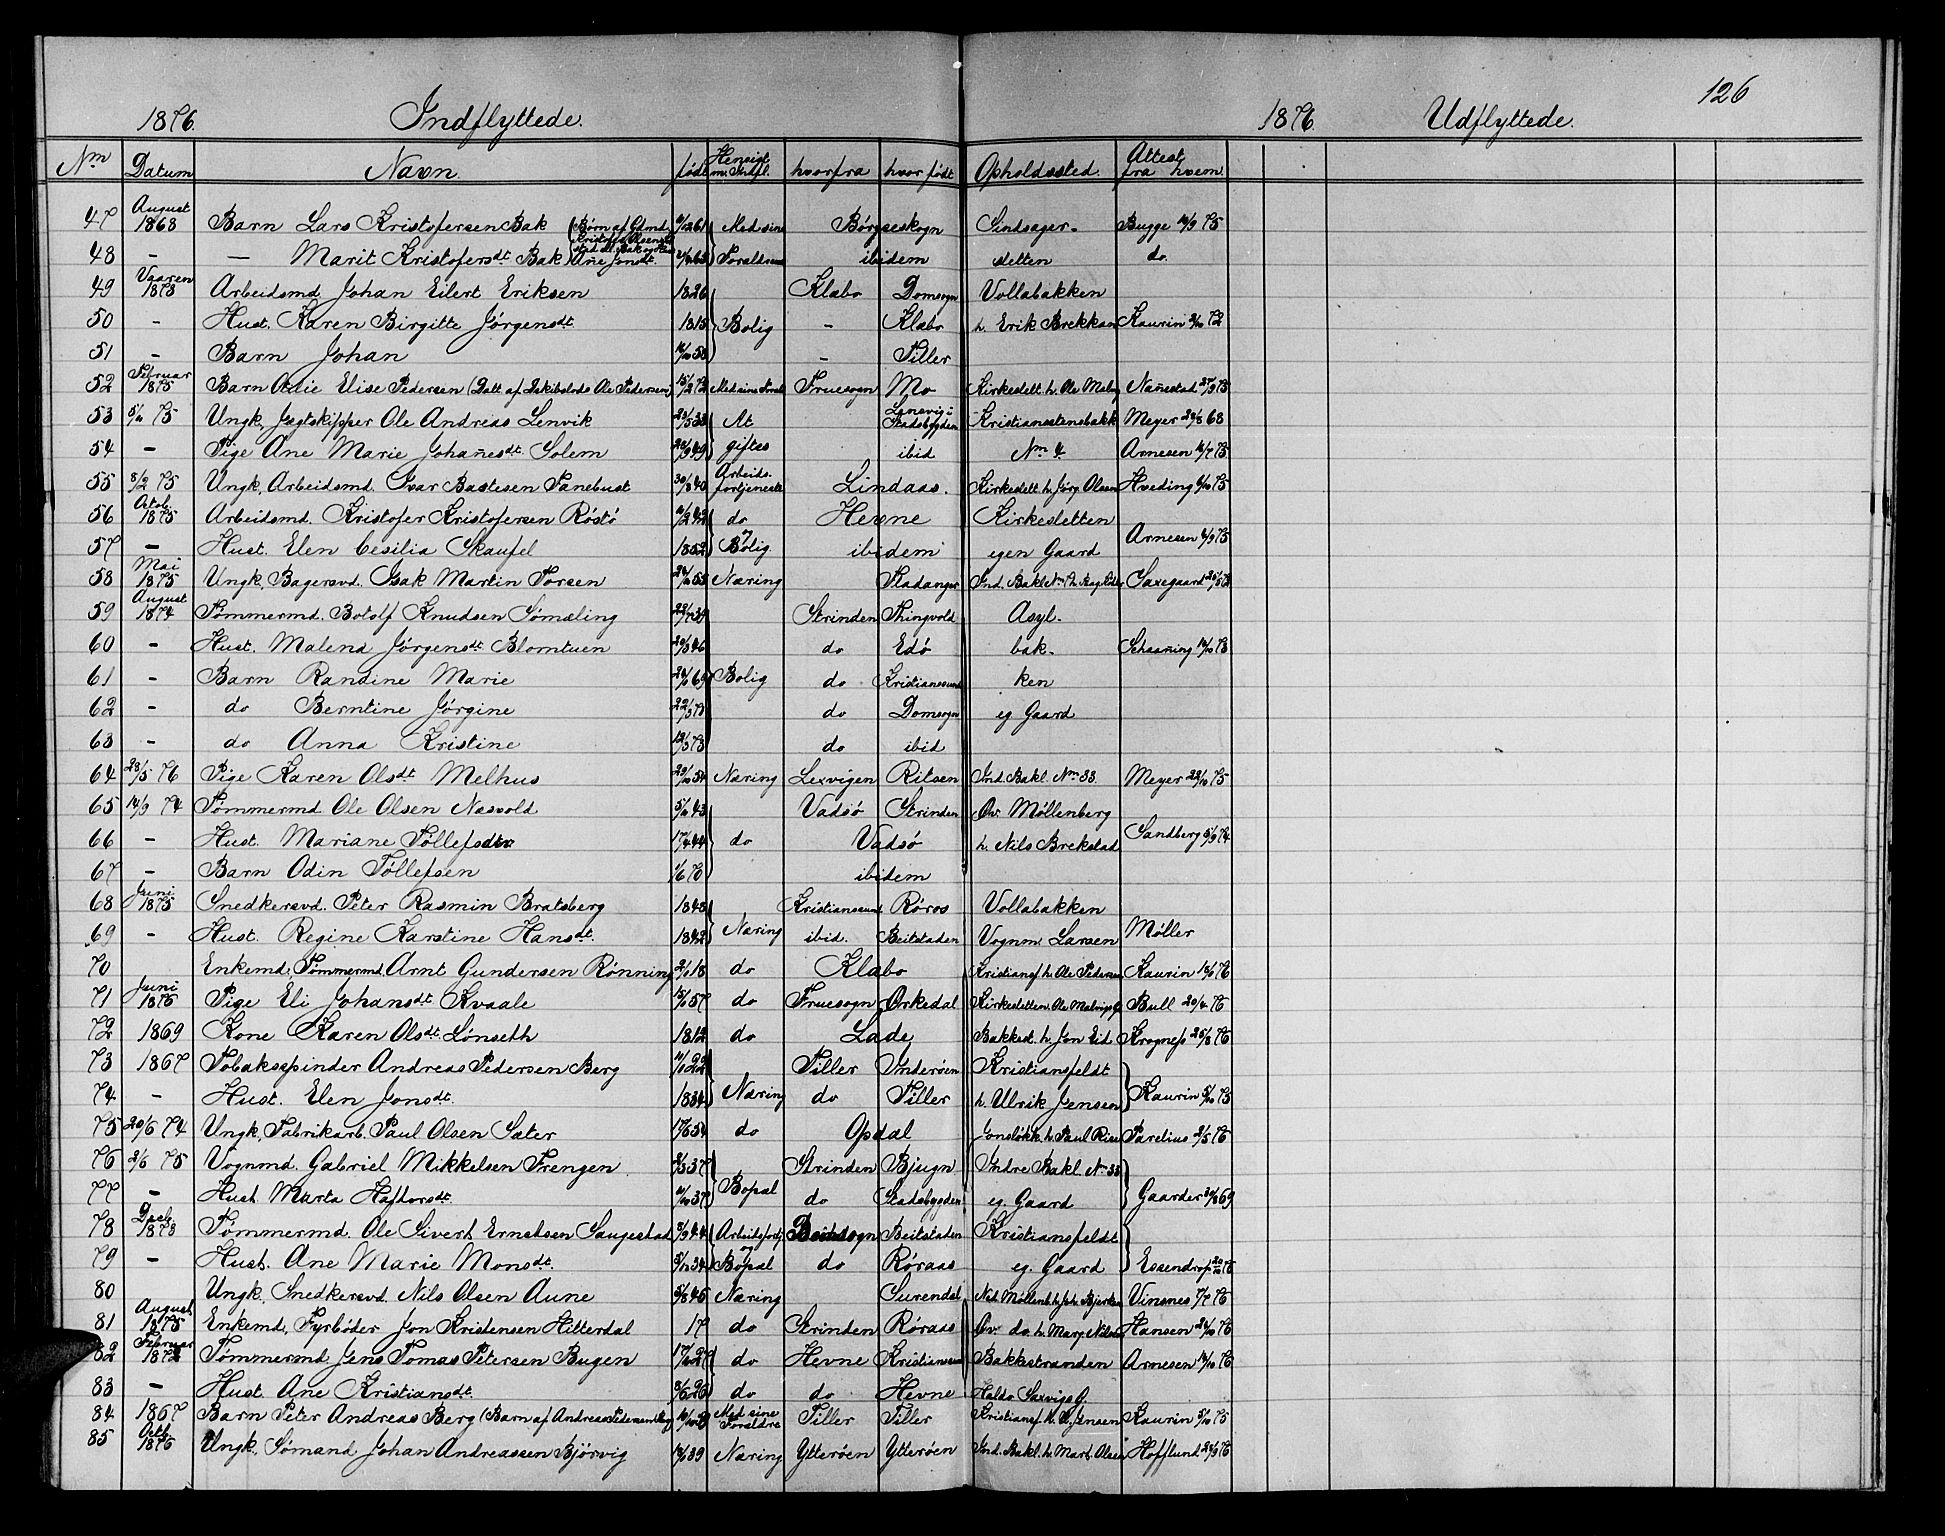 126
1876. Indflyttede. 1876. Udflyttede.
Nm Datum Navn. født Hensigt m. Indfl. hvorfra hvor født Opholdssted. Attest fra hvem
47 August 1868 Barn Lars Kristofersen Bak (Børn af Gbmd. Med sine Børseskogn Sindsager- Bugge 75
48 - — Marit Kristofersdt. Bak Ane Jonsdt. Foraldre ibidem sletten do.
49 Vaaren 1873 Arbeidsmd. Johan Eilert Eriksen 1826 Klæbo Domsogn Vollabakken
50 - Hust. Karen Birgitte Jørgensdt. 1818 Bolig - Klæbo h. Erik Brekkan Kaurin 72
51 - Barn Johan - Tiller
52 Februar 1875 Barn Anie Elise Pedersen (Datt. af Ole Pedersen) Med sine Foræl Fruesogn Mo Kirkeslett. h. Ole Malm Nannestad 73
53 75 Ungk. Jagtskipper Ole Andreas Lenvik 23/5 33 At Lensvig i Stadsbygden Kristianstensbakk Meyer 68
54 - Pige Ane Marie Johannesdt. Solem giftes ibid Nm 4 Arnesen 75
55 8/2 75 Ungk. Arbeidsmd. Ivar Bastesen Tanebust 30/8 40 Arbeids- fortjeneste Lindaas. Kirkeslett. h. Jørg. Olsen Hveding 75
56 Octob. 1875 Arbeidsmd. Kristofer Kristofersen Røstø do Hevne Kirkesletten
57 - Hust. Elen Cesilia Skaufel 1852 Bolig ibidem egen Gaard Arnesen 75
58 Mai 1875 Ungk. Bagersvd. Isak Martin Torsen Næring Stadanger Saxegaard
59 August 1874 Tømmermd. Botolf Knudsen Sømeling 22/7 39 Strinden Thingvold Asyl-
60 - Hust. Malena Jørgensdt. Blomtuen do Edø bak- Schaaning 73
61 - Barn Randine Marie 69 Bolig do Kristianssund ken
62 - do Berntine Jørgine do Domsogn eg Gaard
63 - do Anna Kristine do ibid
64 23/5 76 Pige Karen Olsdt. Melhus Næring Lexvigen Ritsen Ind. Bakl. Nm 33. Meyer 75
65 14/9 74 Tømmermd. Ole Olsen Næsvold 43 Vadsø Strinden Øv. Møllenberg
66 - Hust. Mariane Tøllefsdtr do Vadsø h. Nils Brekstad Sandberg 5/9 74
67 - Barn Odin Tøllefsen 1/6 70 ibidem
68 Juni 1875 Snedkersvd. Peter Rasmin Bratsberg 1843 Kristianssund. Røros Vollabakken
69 - Hust. Regine Karstine Hansdt. 1842 Næring ibid. Beitstaden Vognm. Larsen Møller
70 Enkemd. Tømmermd. Arnt Gundersen Rønning 18 do Klæbo Kristiansf. h. Ole Pedersen Kaurin 76
71 Juni 1876 Pige Eli Johansdt. Kvaale 57 do Fruesogn Orkedal Kirkesletten Ole Malvigs G. Bull 20/4 76
72 1869 Kone Karen Olsdt. Lønseth 1812 do Lade Bakkest. h. Jon Eid Krogness 76
73 1867 Tobaksspinder Andreas Pedersen Berg Tiller Inderøen Kristiansfeldt
74 - Hust. Elen Jonsdt. 1834 Næring do Tiller h. Ulrik Jensen Kaurin 75
75 20/6 74 Ungk. Fabrikarb. Paul Olsen Sæter 54 do Opdal Jonsløkk. h. Paul Rise Parelius 2/5 76
76 2/6 75 Vognmd. Gabriel Mikkelsen Trengen 37 Strinden Bjugn Indre Bakl. Nm 33
77 - Hust. Marta Haftorsdt. 37 Bopæl do Stadsbygden eg. Gaard Gaarder 69
78 Decb. 1873 Tømmermd. Ole Sivert Erntsen Saugestad 44 Arbeidsfortj Beitstaden Kristiansfeldt
79 - Hust. Ane Marie Monsdt. 34 Bopæl do Røraas eg. Gaard Essendrop 76
80 Ungk. Snedkersvd. Nils Olsen Aune 45 Næring Surendal Ned. Møllenb. h. Joh. Vinsnes 7/7 76
81 August 1875 Enkemd. Fyrbøder Jon Kristensen Hitterdal 17 do Strinden Røraas Øv. do. h. Marg. Nilsen Hansen 76
82 Februar 1872 Tømmermd. Jens Tomas Petersen Bugen 27 do Hevne Kristianssund Bakkestranden Arnesen 76
83 - Hust. Ane Kristiansdt. 26 do do Hevne Haldo Saxvigs G.
84 1867 Barn Peter Andreas Berg (Barn af Andreas Pedersen Berg Med sine Foraldre Tiller Tiller Kristiansf. h. U. Jensen Kaurin 75
85 Octb. 1875 Ungk. Sømand Johan Andreassen Bjørvig 39 Næring Ytterøen Ytterøen Ind. Bakl. h. Mart. Olsen Hofflund 76